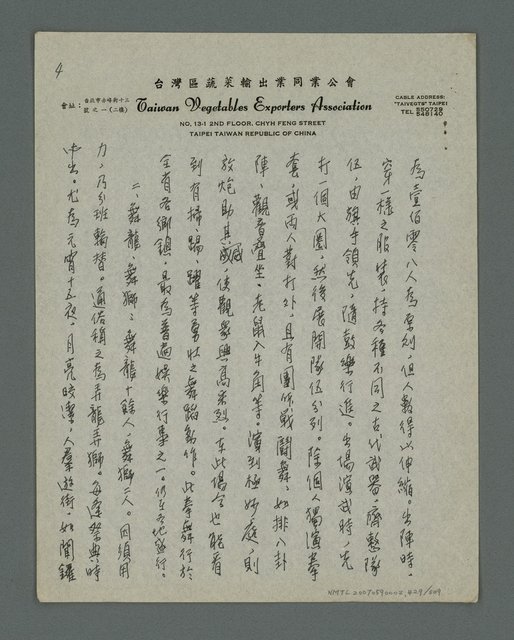 4
台灣區蔬菜輸出業同業公會
會址：台北市赤峰街十三號之一(二樓)
Taiwan Vegetables Exporters Association
CABLE ADDRESS:
"TAIVEGTS" TAIPEI
TEL 550729
546140
NO. 13-1 2ND FLOOR. CHYH FENG STREET
TAIPEI TAIWAN REPUBLIC OF CHINA
為壹佰零八人為原則，但人數得以伸縮。出陣時，
穿一樣之服裝，持各種不同之古代武器，齊整隊
伍，由旗手領先，隨鼓樂行進。出場演武時，先
打一個大圈，然後展開隊伍分列。除個人獨演拳
套，或兩人對打外，且有團所戰鬪舞，如排八卦
陣、觀音齊坐、老鼠入牛角等。演到極妙處，則
放炮助其威，使觀眾興高采烈。在此場合也能看
到有掃、踢、躍等勇壯之舞蹈動作。此拳舞行於
全省各鄉鎮，是最為普遍娛樂行事之一。仍在各地盛行。
二、舞龍、舞獅：舞龍十餘人，舞獅二人。因須用
力，乃分班輪替。通俗稱之為弄龍弄獅。每逢祭典時
中出。尤為元宵十五夜，月亮皎潔，人羣遊街，如聞鑼
NMTL 20070590002, 429/509